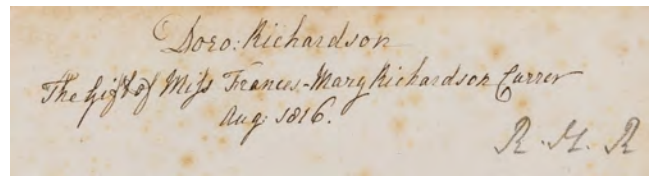 Doro: Richardson
The Gift of Miſs Frances-Mary Richardson Currer
Aug: 1816.
R. H. R